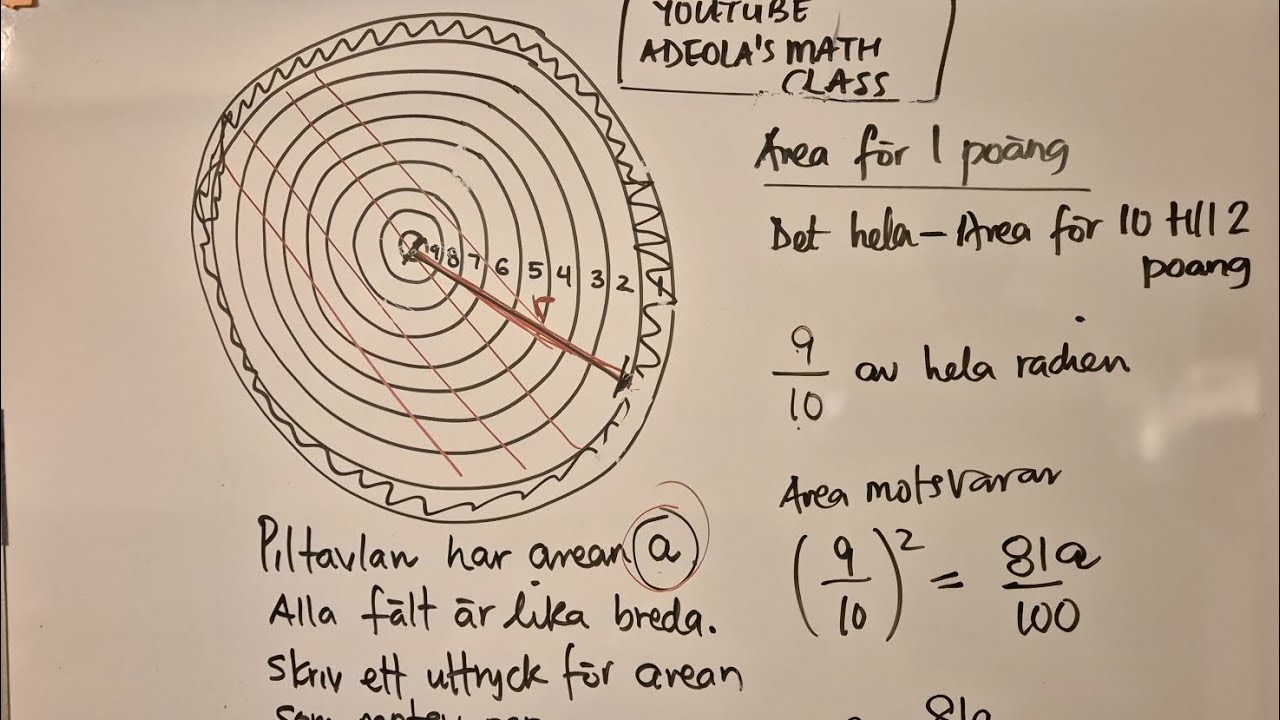 YOUTUBE
ADEOLA'S MATH
CLASS
Area för 1 poäng
Det hela - Area för 10 till 2
poang
9
10
av hela radien
Area motsvarar
(9/10)² = 81a/100
9 8 7 6 5 4 3 2 1
r
Piltavlan har arean a
Alla fält är lika breda.
Skriv ett uttryck för arean
som
81a